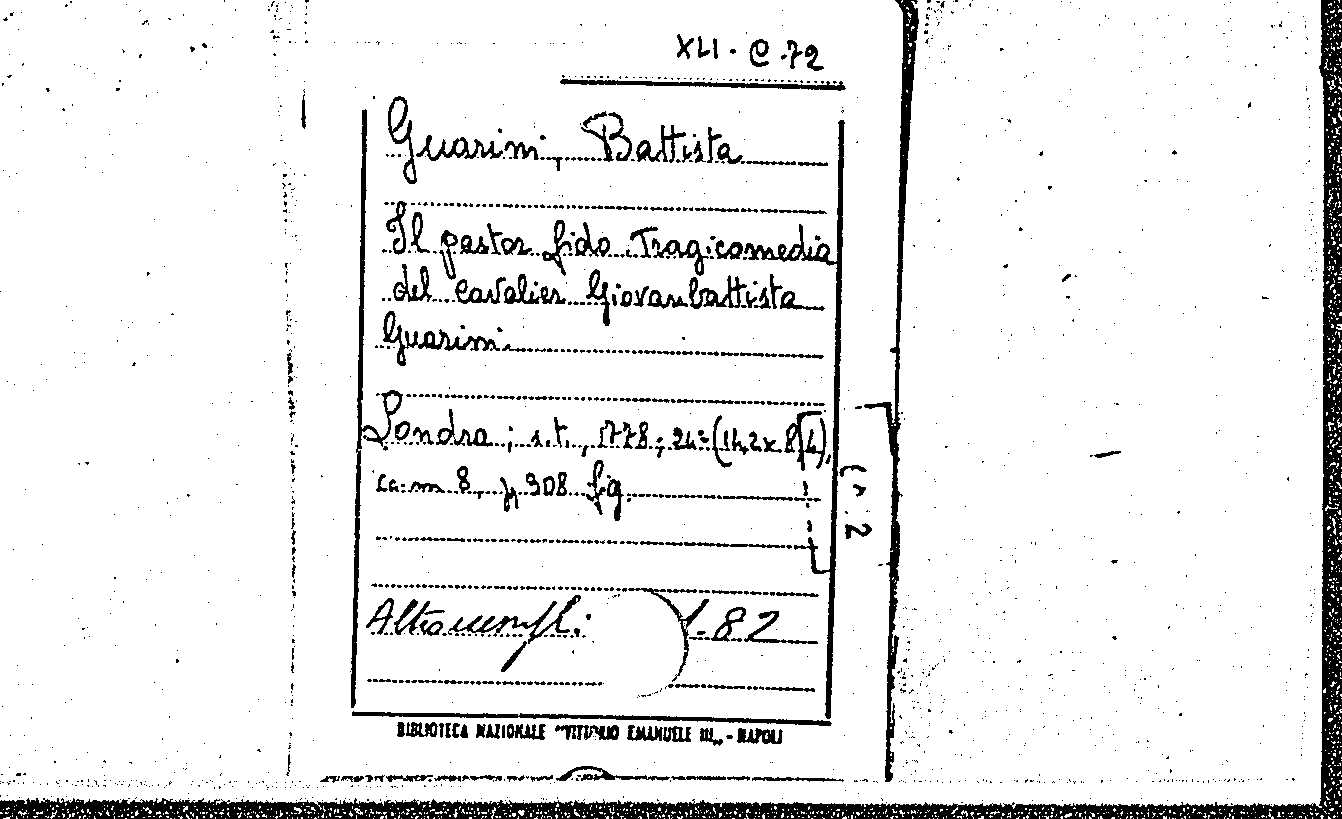 XLI. C. 72
Guarini, Battista
Il pastor fido. Tragicomedia
del cavalier Giovanbattista
Guarini.
Londra; s.t., 1778; 24° (14,2x8
cc. m 8, p. 308 fig.
Altro esempl.: 1.82
(n. 2
BIBLIOTECA NAZIONALE "VITTORIO EMANUELE III„ - NAPOLI